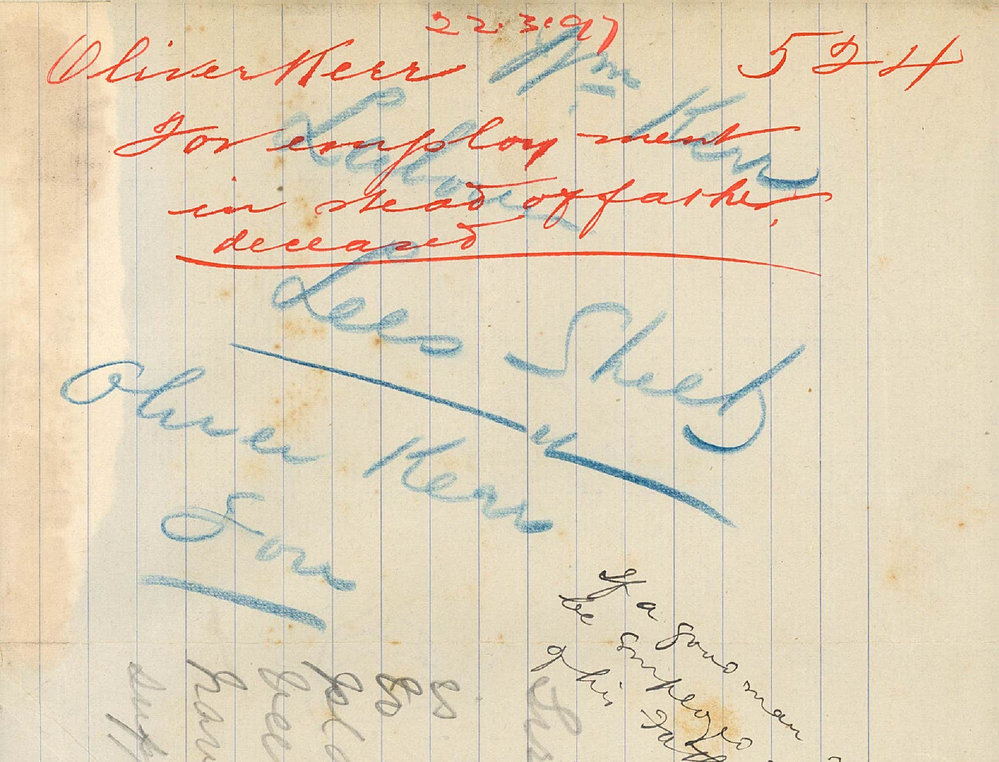 22.3.97
Oliver Kerr 524
For employment
in stead of father,
deceased
Wm Kerr
Labourer
Lees Shed
Oliver Kerr
Son
If a good man
be employed
of his Fath
is
to
hav
sup